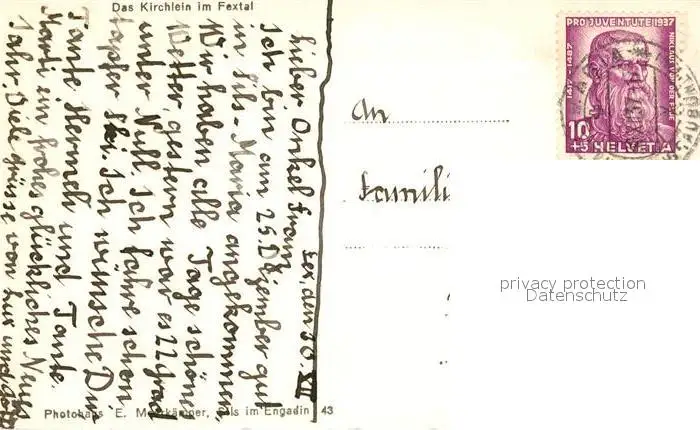 Das Kirchlein im Fextal
Fex, den 30. XII
Lieber Onkel Franz
Ich bin am 25. Dezember gut
in Sils-Maria angekommen.
Wir haben alle Tage schönes
Wetter, gestern war es 22 grad
unter Null. Ich fahre schon
tapfer Ski. Ich wünsche Dir
Tante Hermeli und Tante
Marti ein frohes glückliches Neues
Jahr. Viele grüsse von Lux und
Photohaus E. Meerkämper, Sils im Engadin 43
An
Famili
PRO JUVENTUTE 1937
NIKLAUS VON DER FLÜE
1417-1487
10
+5 HELVETIA
privacy protection
Datenschutz